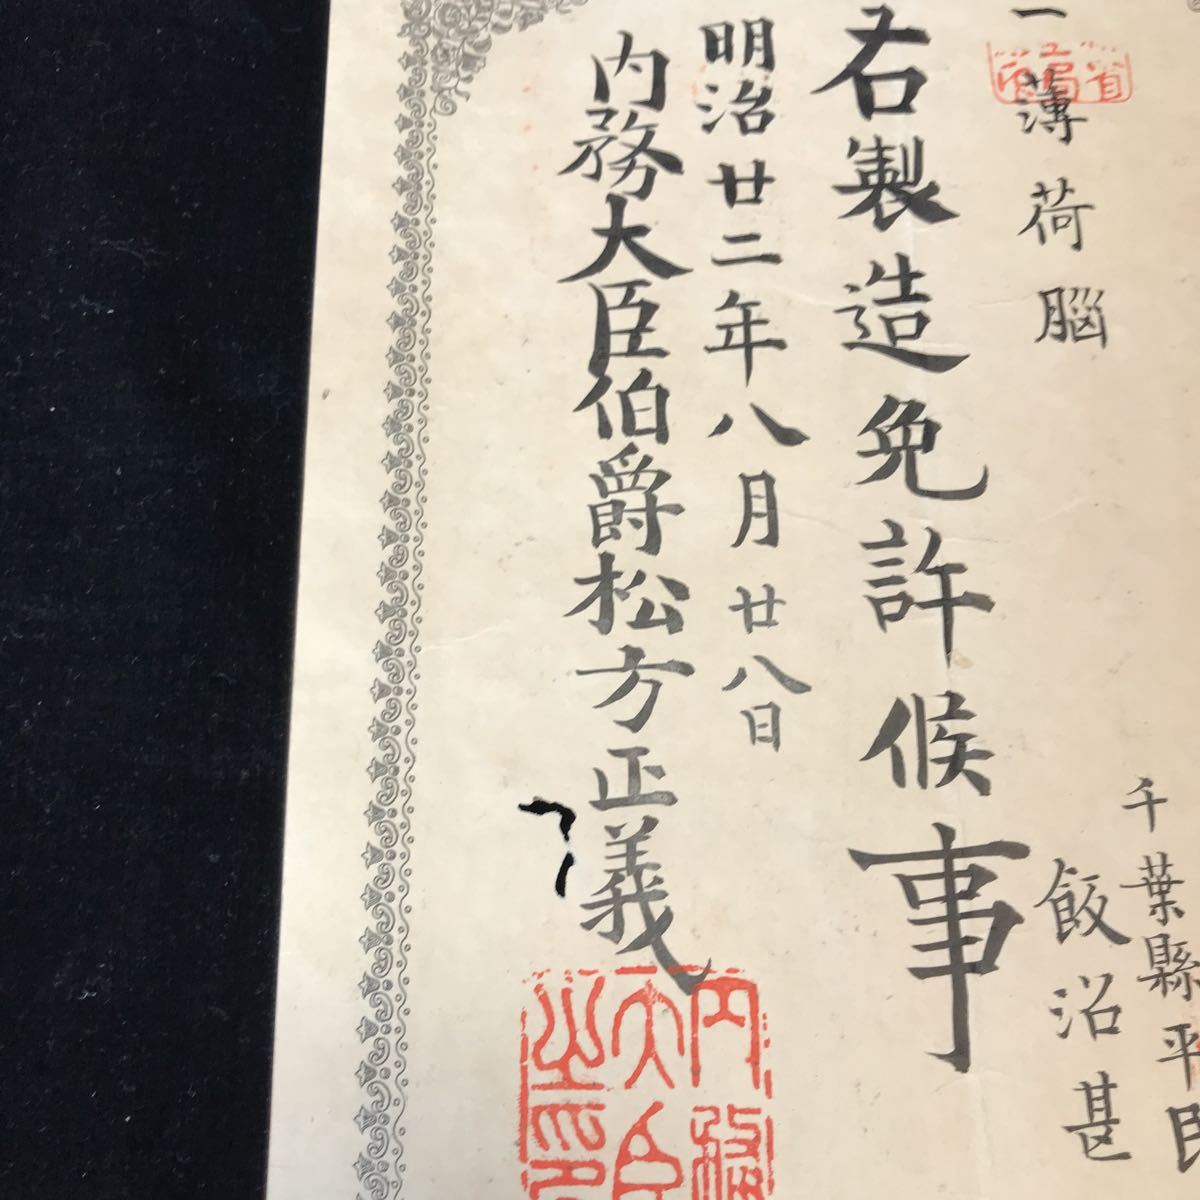 千葉縣平民
飯沼甚
一薄荷脳
右製造免許候事
明治廿二年八月廿八日
内務大臣伯爵松方正義
内務
大臣
之印